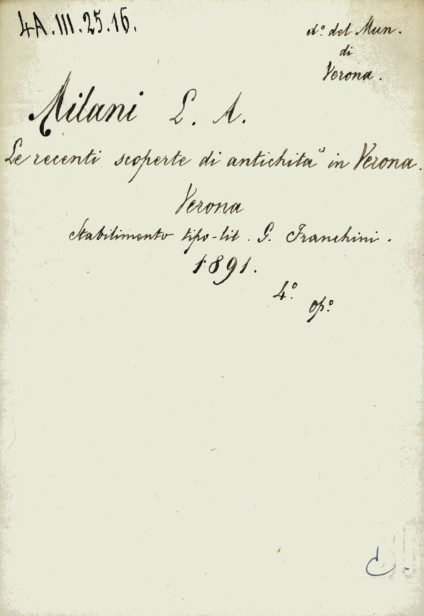 4A.III.25.16.
d.° del Mun.
di
Verona.
Milani L. A.
Le recenti scoperte di antichità in Verona.
Verona
Stabilimento tipo-lit. G. Franchini.
1891.
4.°
op.°